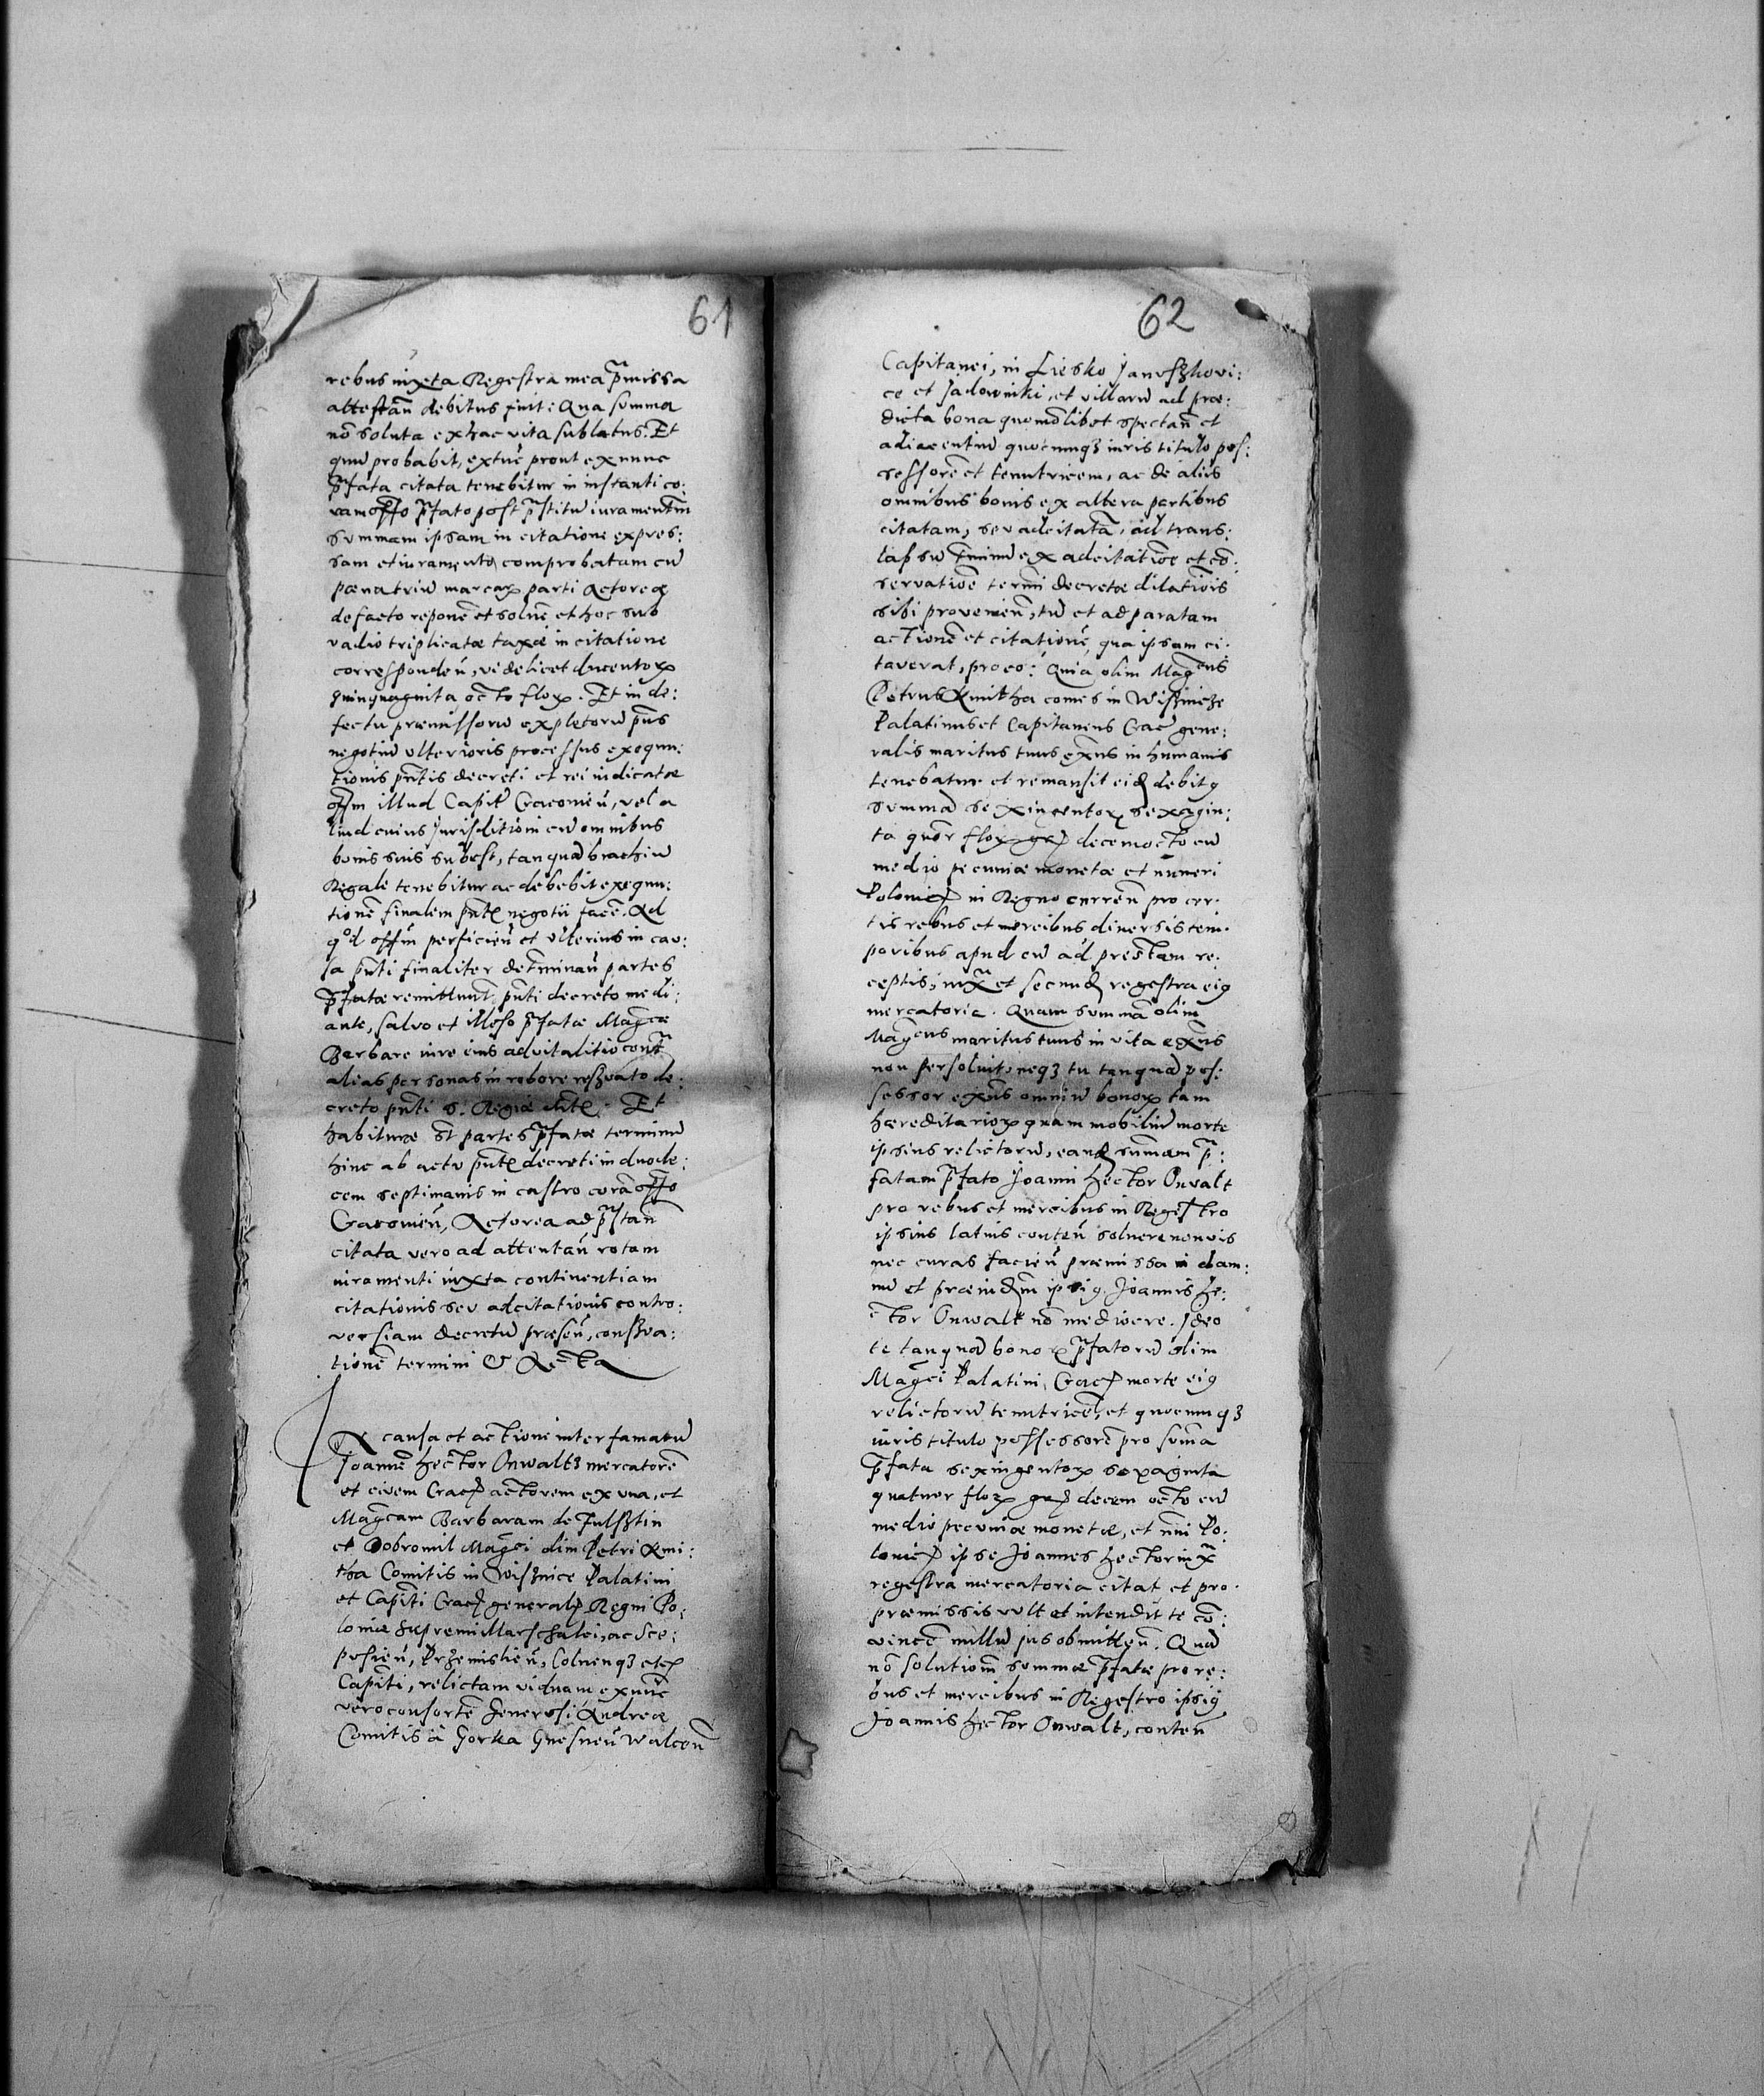 61
rebus iuxta Regestra mea p̃missa
attestañ debitus fuit: Qua summa
nõ soluta ex hac vita sublatus. Et
quũ probabit, extũc prout ex nunc
p̃fata citata tenebitur in instanti co:
ram offo p̃fato post p̃stitũ iuramentũ
summam ipsam in citatione expres:
sam et iuramento comprobatam cũ
pœna triũ marcaꝝ parti Actoreæ
de facto reponẽ et soluẽ et hoc sub
vadio triplicatæ taxæ in citatione
correspondeñ, videlicet ducentoꝝ
quinquaginta octo floꝝ. Et in de:
fectu præmissorũ expletorũ p̃ns
negotiũ vlterioris processus exequu:
tionis p̃ntis decreti et rei iudicatæ
offm illud Capitˀ Cracovieñ, vel a
liud cuius Jurisditioni cũ omnibus
bonis suis subest, tanquã brachiũ
Regale tenebitur ac debebit exequu:
tionẽ finalem p̃ntꝭ negotii facẽ. Ad
qᵒd offm perficieñ et vlterius in cau:
sa p̃nti finaliter det̃minañ partes
p̃fatæ remittunt̃ p̃nti decreto medi:
ante, salvo et illeso p̃fatæ Mag̃cæ
Barbare iure eius advitalitio cont̃
alias personas in robore reseꝛuato de:
creto p̃nti S. Regiæ Mtꝭ. Et
habituræ st̃ partes p̃fatæ terminũ
hinc ab actu p̃ntꝭ decreti in duode:
cem septimanis in castro corã offo
Cracovieñ, Actorea ad p̃stañ
citata vero ad attentañ rotam
iuramenti iuxta continentiam
citationis seu adcitationis contro:
versiam decretũ præseñ, conseꝛva:
tionẽ termini & Acta
In causa et actione inter famatũ
Joannẽ Hector Onwaltꝫ mercatorẽ
et civem Cracꝭ actorem ex vna, et
Mag̃cam Barbaram de Fulsztin
et Dobromil Mag̃ci olim Petri Kmi:
tha Comitis in Wisznice Palatini
et Capiti Cracꝭ generalꝭ Regni Po:
loniæ Supremi Marschalci, ac Sce:
pusieñ, Przemislieñ, Colnenqꝫ etcꝭ
Capiti, relictam viduam ex nũc
vero consortẽ Generosi Andreæ
Comitis à Gorka Gnesneñ Walceñ
62
Capitanei, in Liesko Januszkovi:
ce et Sadowniki, et villarũ ad præ:
dicta bona quomõlibet spectañ et
adiacentiũ quocunqꝫ iuris titulo pos:
sessorẽ et tenutricem, ac de aliis
omnibus bonis ex altera partibus
citatam, seu adcitatã, ad trans:
lapsũ t̃minũ ex adcitatiõe et cõ:
servatiõe termi decretæ dilatiõis
sibi provenieñ, tũ et ad paratam
actionẽ et citationẽ, qua ipsam ci:
taverat, pro eo: Quia olim Magcus
Petrus Kmitha comes in Wisznicze
Palatinus et Capitaneus Cracˀ gene:
ralis maritus tuus exñs in humanis
tenebatur et remansit eidꝭ debitꝰ
summã sexingentoꝝ sexagin:
ta quõr floꝝ gꝛꝭ decem octo cũ
medio pecuniæ monetæ et nũmeri
Polonicꝭ in Regno curreñ pro cer:
tis rebus et mercibus diversis tem:
poribus apud eũ ad prestam re:
ceptis, iuxᵃ et secundꝭ regestra eiꝰ
mercatoria. Quam summã olim
Magcus maritus tuus in vita exñs
non persoluit, neqꝫ tu tanquã pos:
sessor exñs omniũ bonoꝝ tam
hæreditarioꝝ quam mobiliũ morte
ipsius relictorũ, eandꝭ summam p̃:
fatam p̃fato Joanni Hector Onvalt
pro rebus et mercibus in Regestro
ipsius latius conteñ soluere non vis
nec curas facieñ præmissa in dam:
nũ et præiudm ipsiꝰ Joannis He:
ctor Onwalt nõ mediocre. Ideo
te tanquã bonoꝝ p̃fatorũ olim
Mag̃ci Palatini, Cracꝭ morte eiꝰ
relictorũ tenutricẽ, et quocunqꝫ
iuris titulo possessorẽ pro summa
p̃fata sexingentoꝝ sexaginta
quatuor floꝝ gꝛꝭ decem octo cũ
medio pecuniæ monetæ, et nũi Po:
lonicꝭ ipse Joannes Hector iuxᵃ
regestra mercatoria citat et pro
præmissis vult et intendit te cõ:
vincẽ nullũ jus obmitteñ. Quã
nõ solutionẽ summæ p̃fatæ pro re:
bus et mercibus in Regestro ipsiꝰ
Joannis Hector Onwalt, conteñ